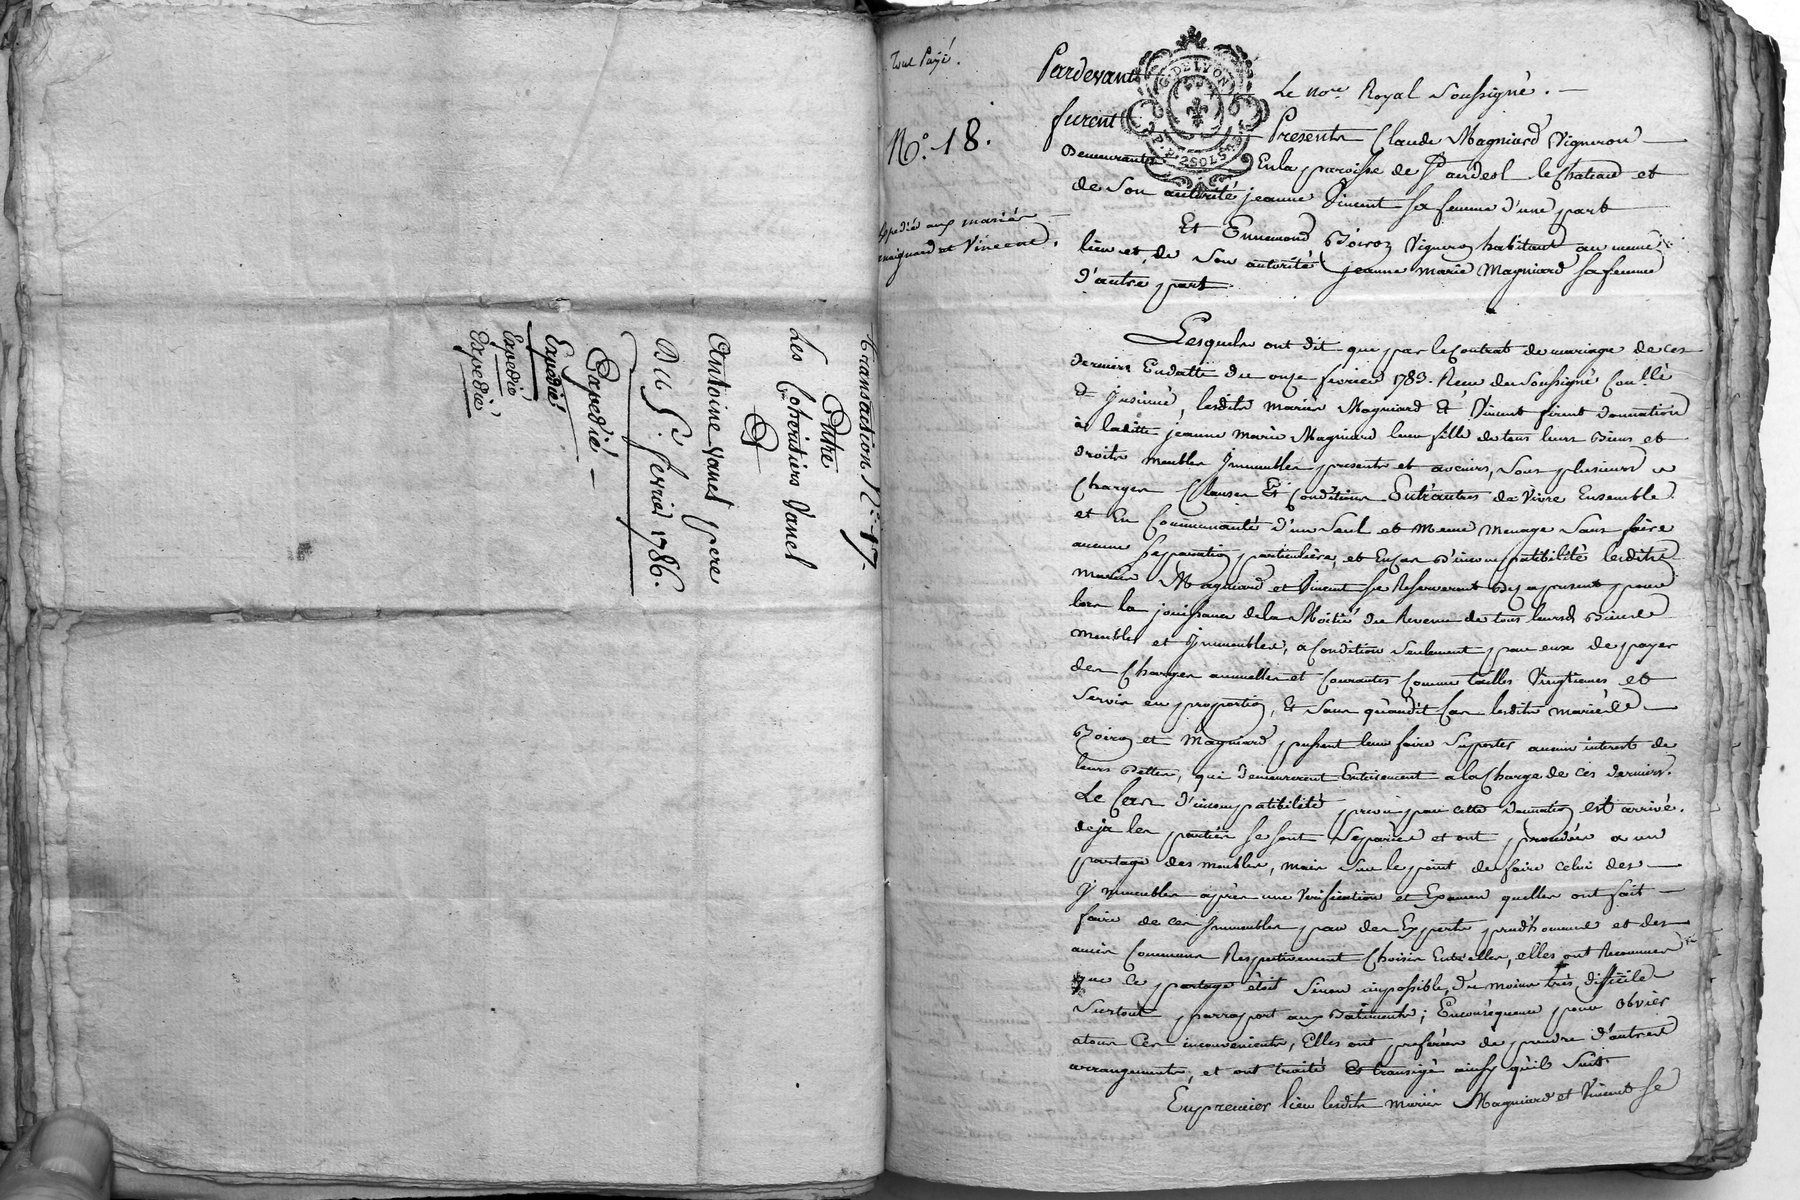 Transaction N.° 17.
Entre
Les Cohéritiers Vanel
&
Antoine Vanel pere
Du 5.e fevrier 1786.
Expedié
Expedié
Expedié
Expedié
tout Payé.
N.° 18.
Expedié aux mariés
magniard et Vincent.
G. DE LYON
2 SOLS
Pardevant Le no.re Royal Soussigné.
furent Presents Claude Magniard Vigneron
Demeurants En la paroisse de le Chateau et
de Son autorité jeanne Vincent sa femme d'une part
Et Ennemond Boiron Vigneron habitant au meme
lieu et, de Son autorité jeanne marie Magniard Sa femme
d'autre part.
Lesquels ont dit que par le Contrat de mariage de ces
derniers En datte du onze fevrier 1783. Recu du Soussigné Con.llé
& Insinué, lesdits mariés Magniard Et Vincent firent donnation
à laditte jeanne marie Magniard leur fille de tous leurs Biens et
droits meubles Immeubles presents et avenirs, Sous plusieurs
Charges Clauses Et Conditions Entrautres de Vivre Ensemble
et En Communauté d'un Seul et meme menage Sans faire
aucune Separation particulière, et En cas d'incompatibilité lesdits
mariés Magniard et Vincent se Reserverent Des apresent pour
lors la jouissance de la Moitié du Revenu de tous leursd. Biens
meubles et Immeubles, a Condition Seulement pour eux de payer
des Charges annuelles et Courantes Comme tailles Vingtiemes et
Servis en proportion, Et Sans qu'audit Cas lesdits mariés
Boiron et Magniard pussent leur faire Suporter aucun interest de
leurs Dettes, qui demeureront Entierement a la Charge de ces derniers.
Le Cas d'incompatibilité prevu par cette donnation est arrivé.
deja les parties se sont Separées et ont procedées a un
partage des meubles, mais Sur le point de faire Celui des
Immeubles après une Verification et Examen quelles ont fait
faire de ces Immeubles par des Experts prud'hommes et des
amis Communs Respectivement Choisis Entr'elles, elles ont Reconnu
que ce partage étoit Sinon impossible, du moins très difficile
Surtout parraport aux Batiments; En conséquence pour obvier
atous Ces inconvenients, Elles ont preferées de prendre d'autres
arrangements, et ont traité Et transigé ainsy qu'il Suit
En premier lieu lesdits mariés Magniard et Vincent se